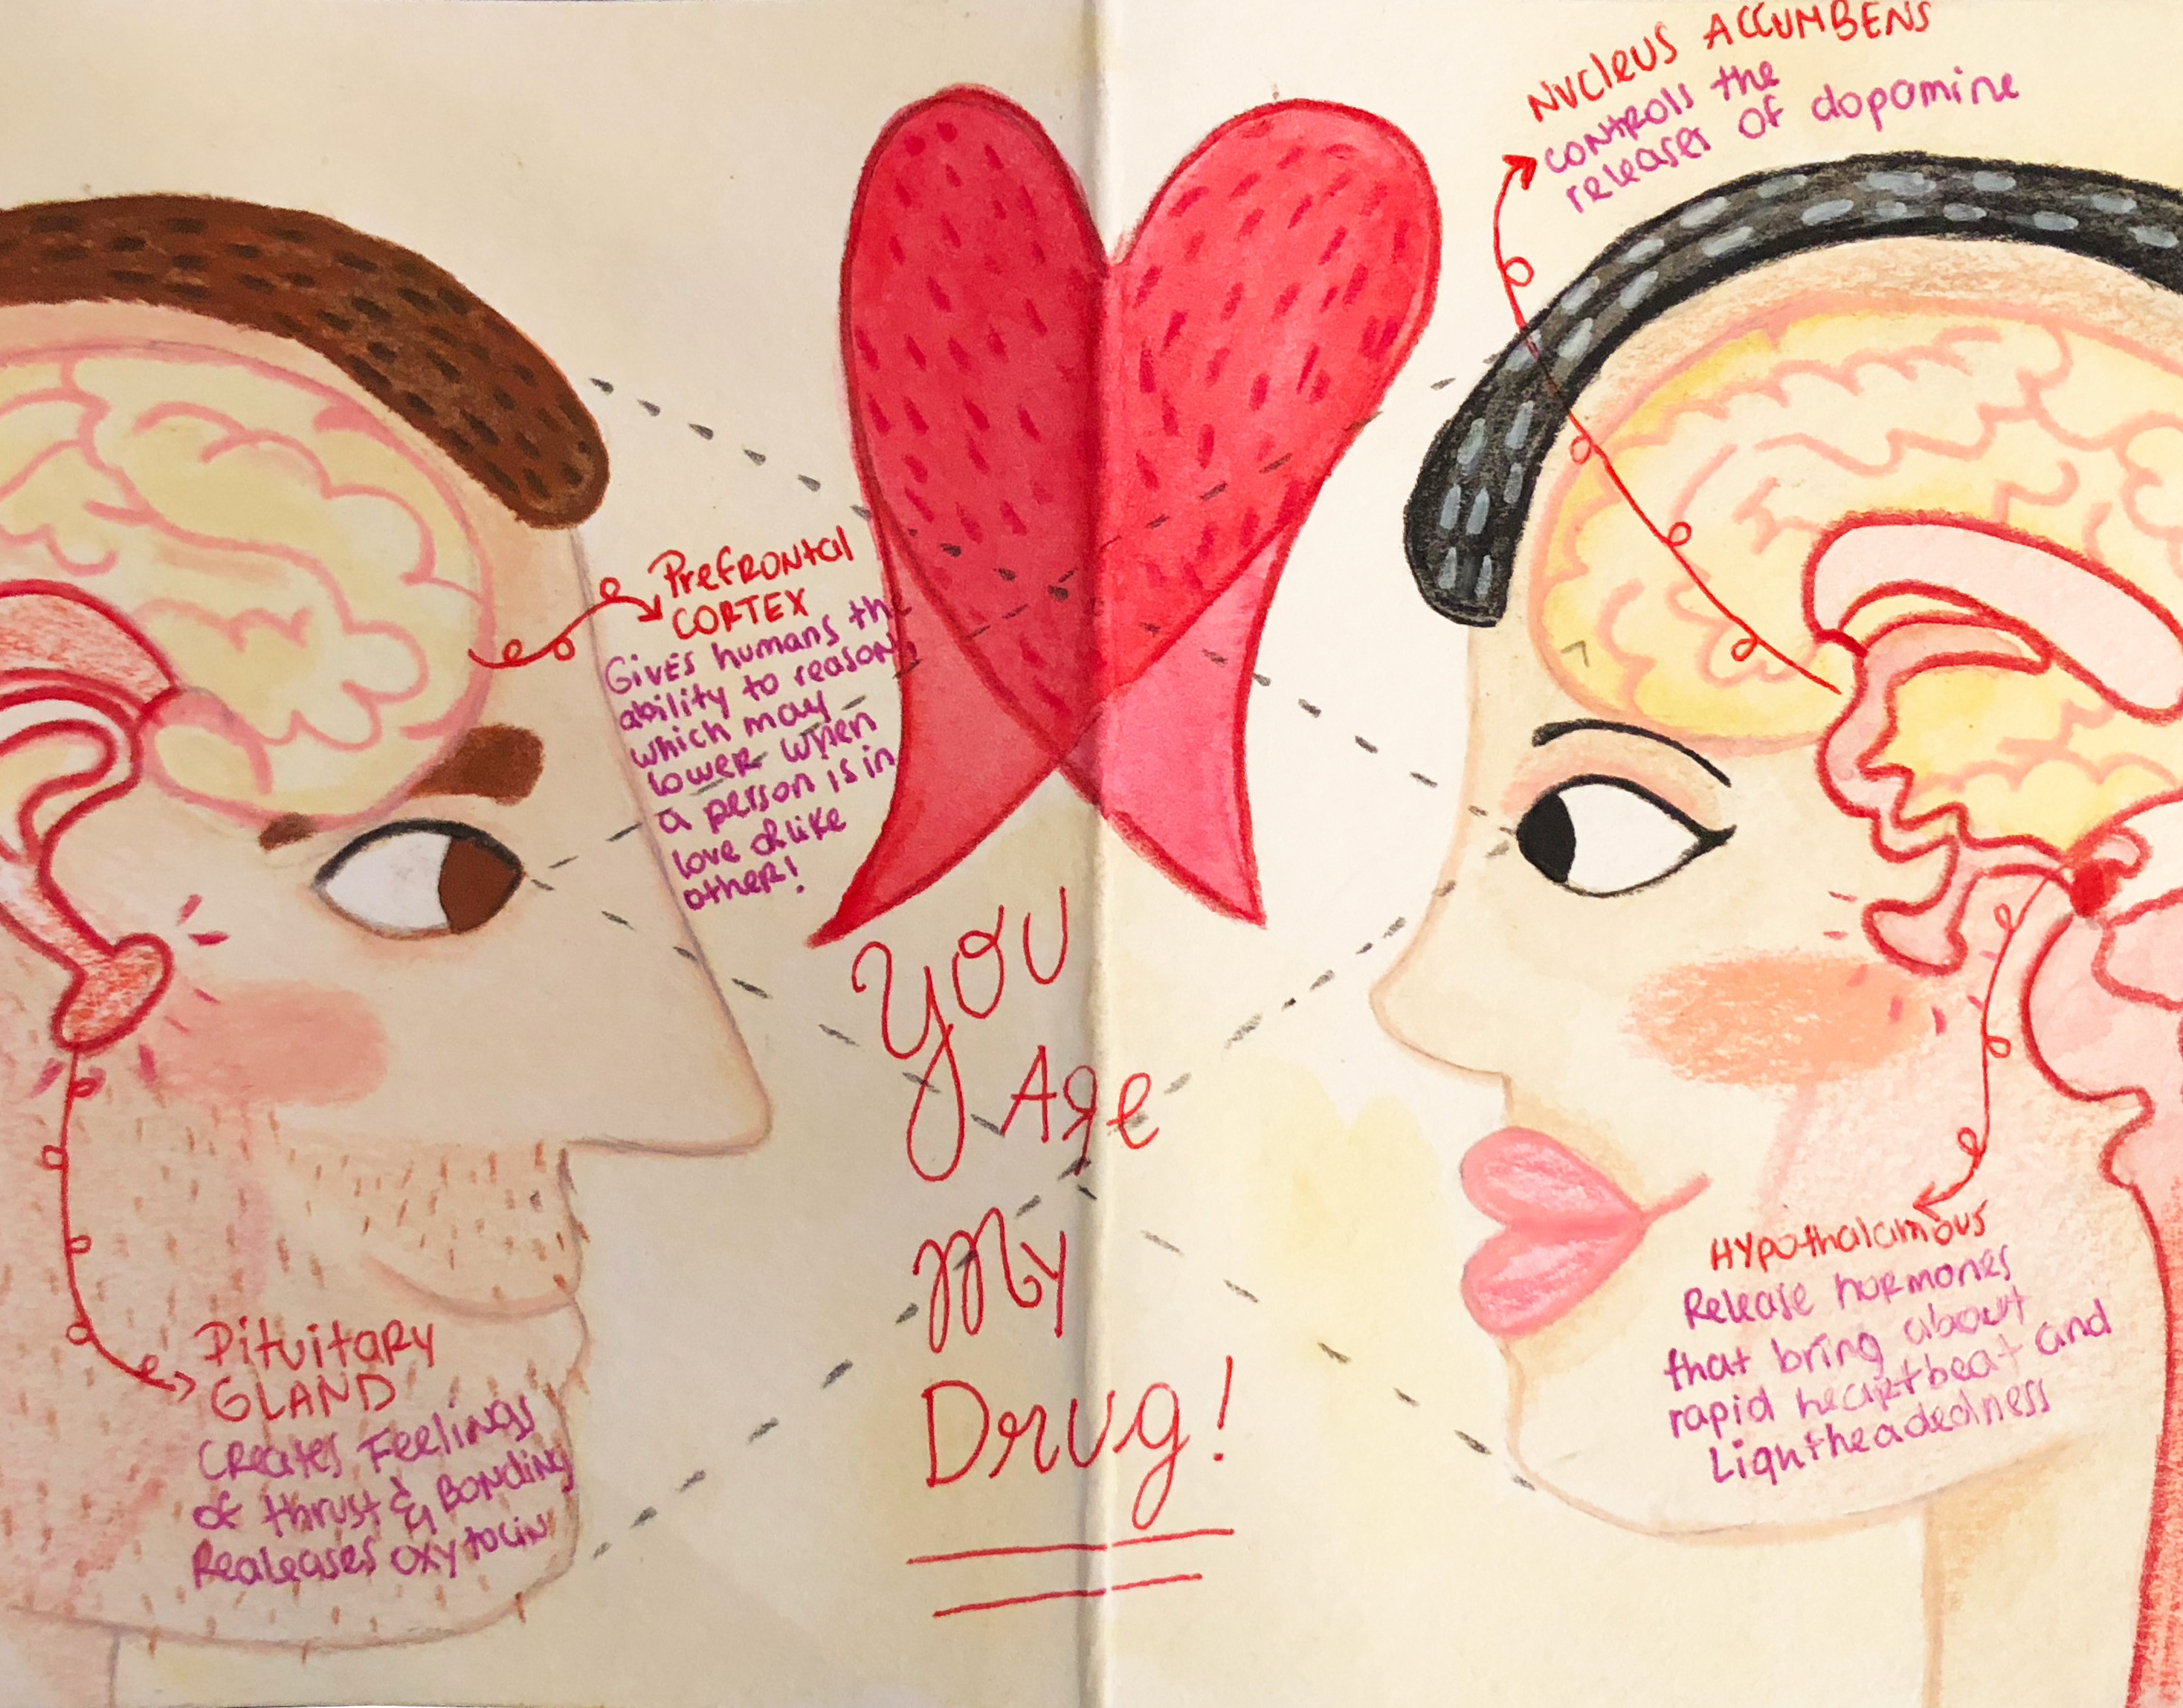 Prefrontal
CORTEX
Gives humans the
ability to reason,
which may
lower when
a person is in
love or like
other!
Pituitary
GLAND
Creates Feelings
of thrust & Bonding
Realeases oxytocin
YOU
Are
My
Drug!
Nucleus ACCUMBENS
controls the
releases of dopamine
Hypothalamous
Release hurmones
that bring about
rapid heartbeat and
Lightheadedness